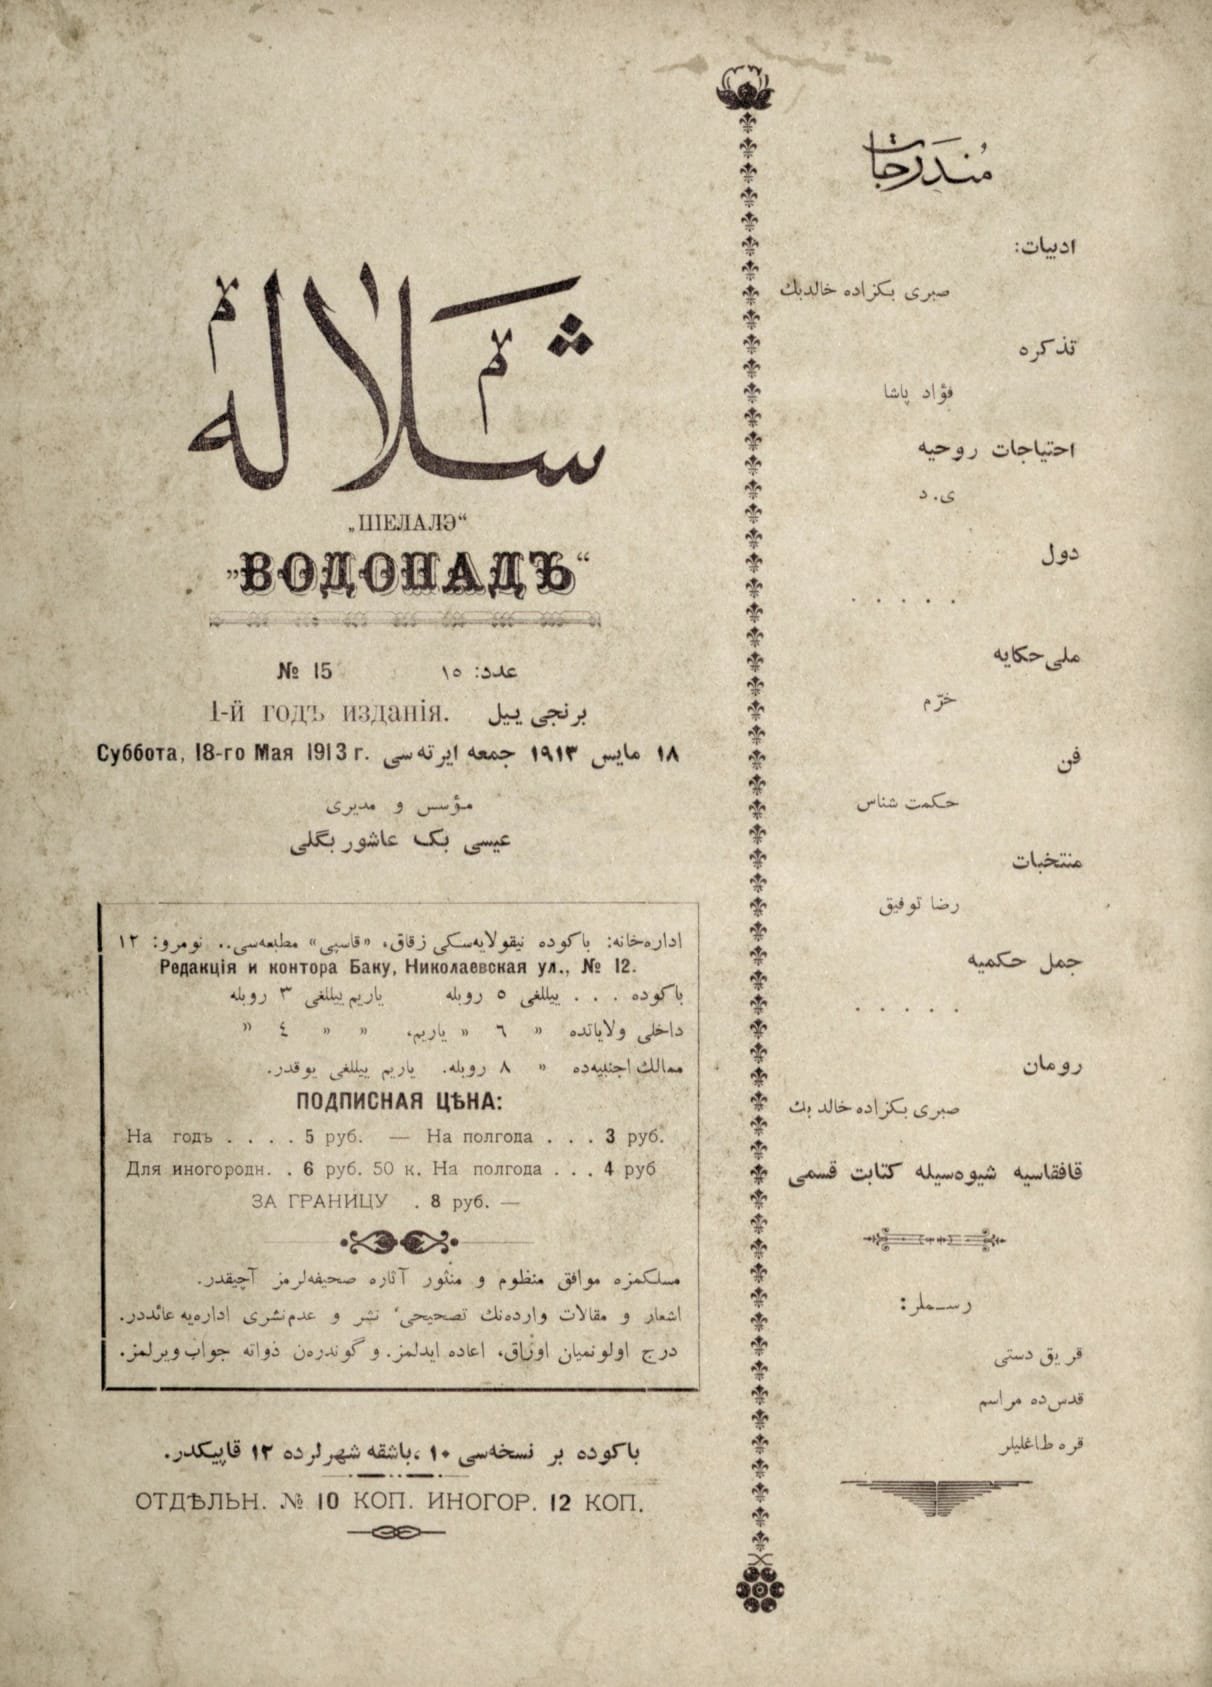 شلاله
„ШЕЛАЛЭ“
„ВОДОПАДЪ“
№ 15 عدد: ١٥
1-й годъ изданія. برنجی ییل
Суббота, 18-го Мая 1913 г. ١٨ مایس ١٩١٣ جمعه ایرته‌سی
مؤسس و مدیری
عیسی بک عاشور بگلی
اداره‌خانه: باکوده نیقولایه‌سکی زقاق، «قاسپی» مطبعه‌سی.. نومرو: ١٢
Редакція и контора Баку, Николаевская ул., № 12.
باکوده . . . ییللغی ٥ روبله یاریم ییللغی ٣ روبله
داخلی ولایاتده » ٦ » یاریم، » » ٤ »
ممالك اجنبیه‌ده » ٨ روبله. یاریم ییللغی یوقدر.
ПОДПИСНАЯ ЦѢНА:
На годъ . . . . 5 руб. — На полгода . . . 3 руб.
Для иногородн. . 6 руб. 50 к. На полгода . . . 4 руб
ЗА ГРАНИЦУ . 8 руб. —
مسلكمزه موافق منظوم و منثور آثاره صحیفه‌لرمز آچیقدر.
اشعار و مقالات وارده‌نك تصحیحی ٔ نشر و عدم‌نشری اداره‌یه عائددر.
درج اولونمیان اوراق، اعاده ایدلمز. و گوندره‌ن ذواته جواب ویرلمز.
باکوده بر نسخه‌سی ١٠، باشقه شهرلرده ١٢ قاپیکدر.
ОТДѢЛЬН. № 10 КОП. ИНОГОР. 12 КОП.
مُندَرجات
ادبیات:
صبری بکزاده خالدبك
تذکره
فؤاد پاشا
احتیاجات روحیه
ی. د
دول
. . . . .
ملی حکایه
خرّم
فن
حکمت شناس
منتخبات
رضا توفیق
جمل حکمیه
. . . . .
رومان
صبری بکزاده خالد بك
قافقاسیه شیوه‌سیله کتابت قسمی
رسـملر:
قریق دستی
قدس‌ده مراسم
قره طاغلیلر